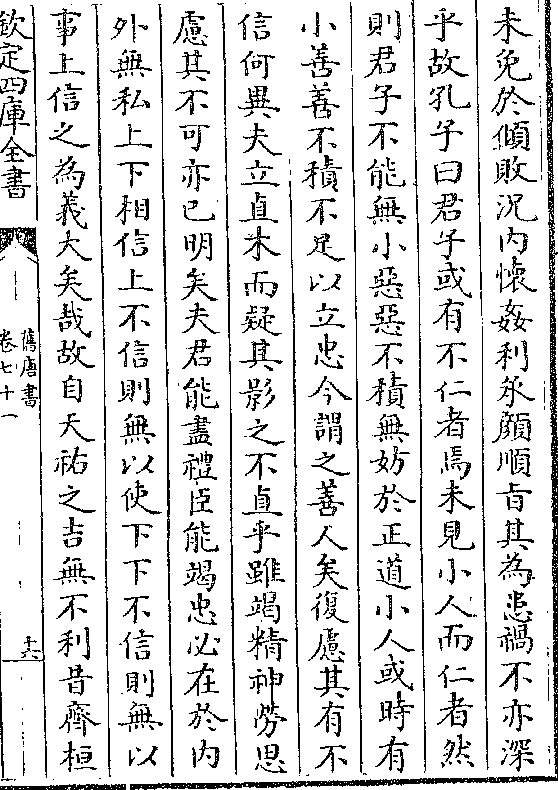 未免於傾敗況内懷姦利承顔順㫖其為患禍不亦深
乎故孔子曰君子或有不仁者焉未見小人而仁者然
則君子不能無小惡惡不積無妨於正道小人或時有
小善善不積不足以立忠今謂之善人矣復慮其有不
信何異夫立直木而疑其影之不直乎雖竭精神勞思
慮其不可亦已明矣夫君能盡禮臣能竭忠必在於内
外無私上下相信上不信則無以使下下不信則無以
事上信之為義大矣哉故自天祐之吉無不利昔齊桓
欽定四庫全書
舊唐書
卷七十一
十六